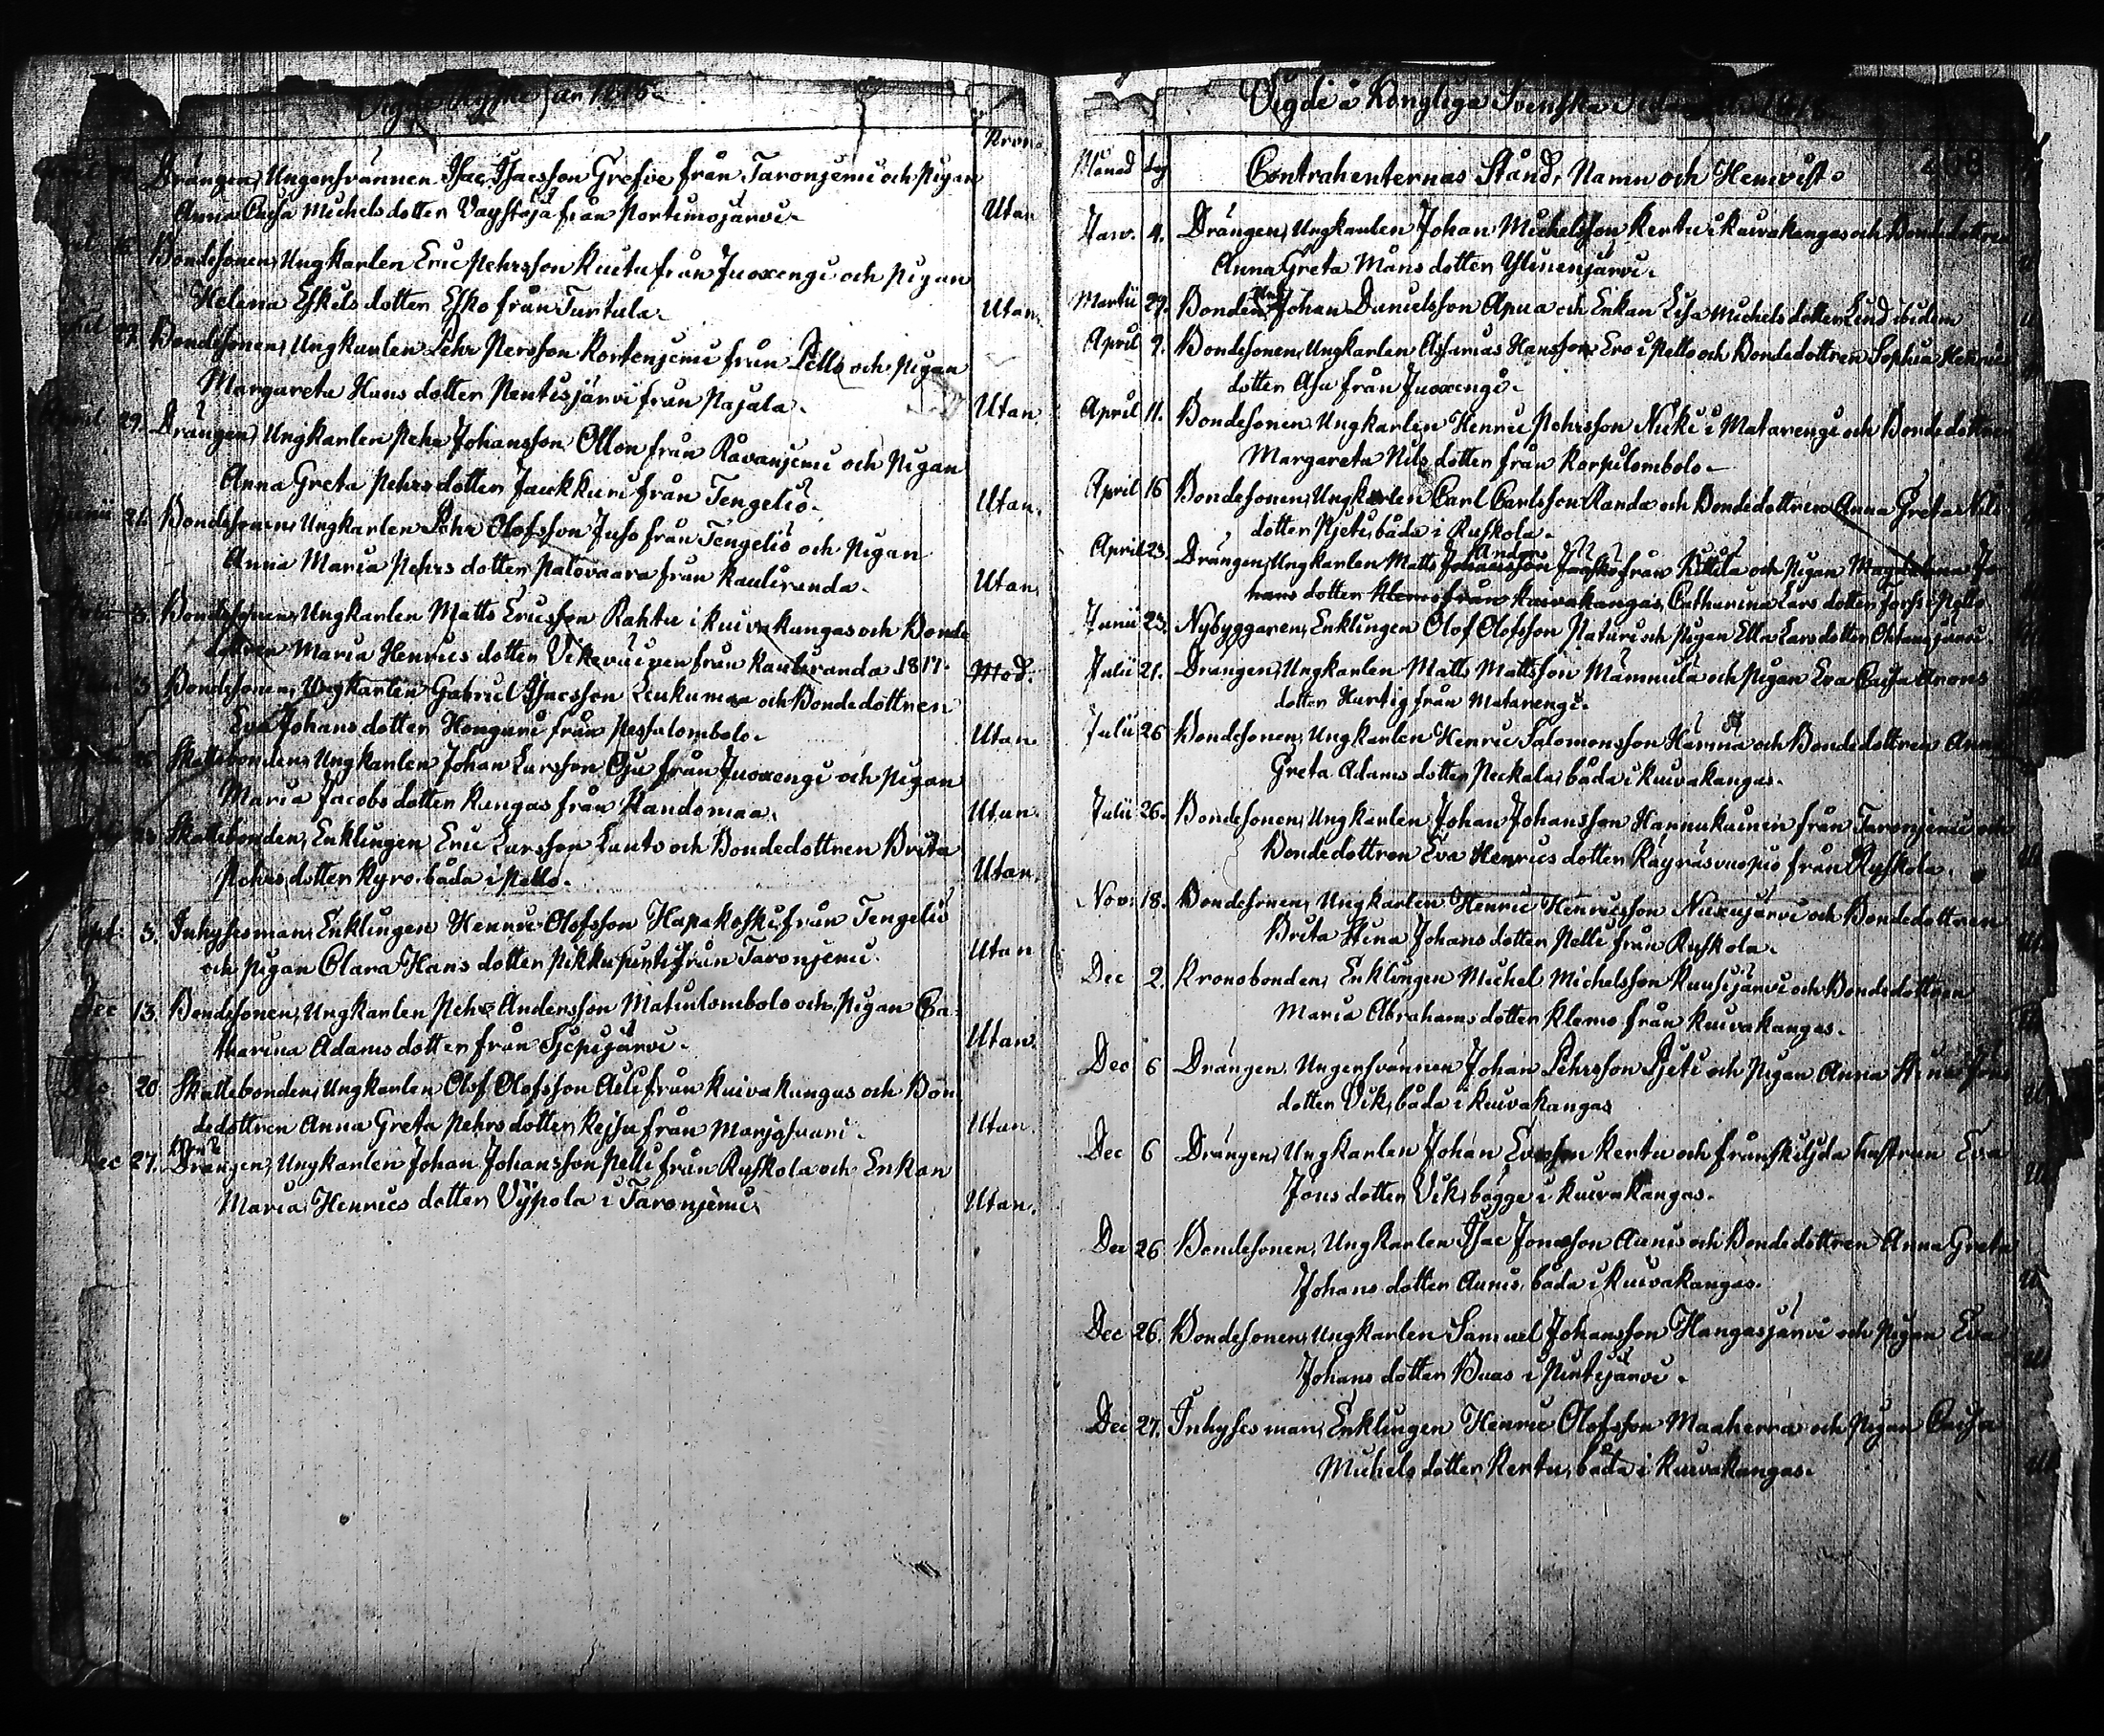 Vigde Ryska år 1815.
Kron.
Drängen, Ungersvännen Isac Isacsson Grefve från Taronjemi och Pigan
Anna Caisa Michels dotter Väystäjä från Portimojärvi. Utan
Bondesonen, Ungkarlen Eric Pehrsson Kuitu från Juoxengi och Pigan
Helena Eskils dotter Esko från Turtula. Utan.
April 27. Bondesonen, Ungkarlen Pehr Persson Kortenjemi från Pello och Pigan
Margareta Hans dotter Pentisjärvi från Pajala. Utan.
April 29. Drängen, Ungkarlen Pehr Johansson Ollon från Råvanjemi och Pigan
Anna Greta Pehrs dotter Jaukkuri från Tengeliö. Utan.
Junii 21. Bondesonen, Ungkarlen Pehr Olofsson Juso från Tengeliö och Pigan
Anna Maria Pehrs dotter Palovaara från Kauliranda. Utan.
3. Bondesonen, Ungkarlen Matts Ericsson Rahtu i Kuivakangas och Bonde
dottren Maria Henrics dotter Vikeväinen från Kauliranda 1817. Med.
3 Bondesonen, Ungkarlen Gabriel Isacsson Leukumaa och Bondedottren
Eva Johans dotter Honguri från Pessalombolo. Utan.
Skattebonden, Ungkarlen Johan Larsson Oju från Juoxengi och Pigan
Maria Jacobs dotter Kungas från Kandomaa. Utan.
Skattebonden, Enklingen Eric Larsson Lauto och Bondedottren Brita
Pehrs dotter Kyro båda i Pello. Utan.
Sept. 3. Inhysesman, Enklingen Henric Olofsson Hapakoski från Tengeliö
och Pigan Clara Hans dotter Pikkupirti från Taronjemi. Utan
Dec 13. Bondesonen, Ungkarlen Pehr Andersson Matinlombolo och Pigan Ca-
tharina Adams dotter från Sjepijärvi. Utan.
Dec 20 Skattebonden, Ungkarlen Olof Olofsson Aili från Kuivakangas och Bon
dedottren Anna Greta Pehrs dotter Kejsu från Marjosaari. Utan.
Dec 27. Drängen, Ungkarlen Johan Johansson Pelli från Ruskola och Enkan
Maria Henrics dotter Vyspola i Taronjemi. Utan.
Vigde å Kongliga Svenska
Månad dag Contrahenternas Stånd, Namn och Hemvist. 208
Janv. 4. Drängen, Ungkarlen Johan Michelsson Kertu i Kuivakangas och Bondedottren
Anna Greta Måns dotter Ylinenjärvi.
Martii 29. Bonden Johan Danielsson Apua och Enkan Lisa Michels dotter Lind ibidem
April 9. Bondesonen, Ungkarlen Asarias Hansson Ero i Pello och Bondedottren Sophia Henrics
dotter Asu från Juoxengi.
April 11. Bondesonen Ungkarlen Henric Pehrsson Niki i Matarengi och Bondedottren
Margareta Nils dotter från Korpilombolo.
April 16 Bondesonen, Ungkarlen Carl Carlsson Randa och Bondedottren Anna Greta Nils
dotter Pjeti, båda i Ruskola.
Anders
April 23. Drängen, Ungkarlen Matts Johansson från Kittilä och Pigan Magdalena Jo
hans dotter Klemo från Kuivakangas, Catharina Lars dotter Pello
Junii 23. Nybyggaren, Enklingen Olof Olofsson Naturi och Pigan Ella Lars dotter Ohtanajärvi.
Julii 21. Drängen, Ungkarlen Matts Mattsson Mämmilä och Pigan Eva Caisa Arons
dotter Hurtig från Matarengi.
Julii 26 Bondesonen, Ungkarlen Henric Salomonsson Harma och Bondedottren Anna
Greta Adams dotter Peckala, båda i Kuivakangas.
Julii 26. Bondesonen, Ungkarlen Johan Johansson Hannukainen från Taronjemi och
Bondedottren Eva Henrics dotter Räyräsvuopio från Ruskola.
Nov. 18. Bondesonen, Ungkarlen Henric Henricsson Niuxujärvi och Bondedottren
Brita Stina Johans dotter Pelli från Ruskola.
Dec 2. Kronobonden, Enklingen Michel Michelsson Kuusijärvi och Bondedottren
Maria Abrahams dotter Klemo från Kuivakangas.
Dec 6 Drängen, Ungersvännen Johan Pehrsson Pjeti och Pigan Anna Stina Jöns
dotter Vik, båda i Kuivakangas
Dec 6 Drängen, Ungkarlen Johan Kertu och frånskiljda hustrun Eva
Jöns dotter Vik, bägge i Kuivakangas.
Dec 26 Bondesonen, Ungkarlen Isac Jonasson Aunis och Bondedottren Anna Greta
Johans dotter Aunis, båda i Kuivakangas.
Dec 26. Bondesonen, Ungkarlen Samuel Johansson Hangasjärvi och Pigan Eva
Johans dotter Buas i Pirtijärvi.
Dec 27. Inhysesman, Enklingen Henric Olofsson Maaherra och Pigan Caisa
Michels dotter Kertu, båda i Kuivakangas.